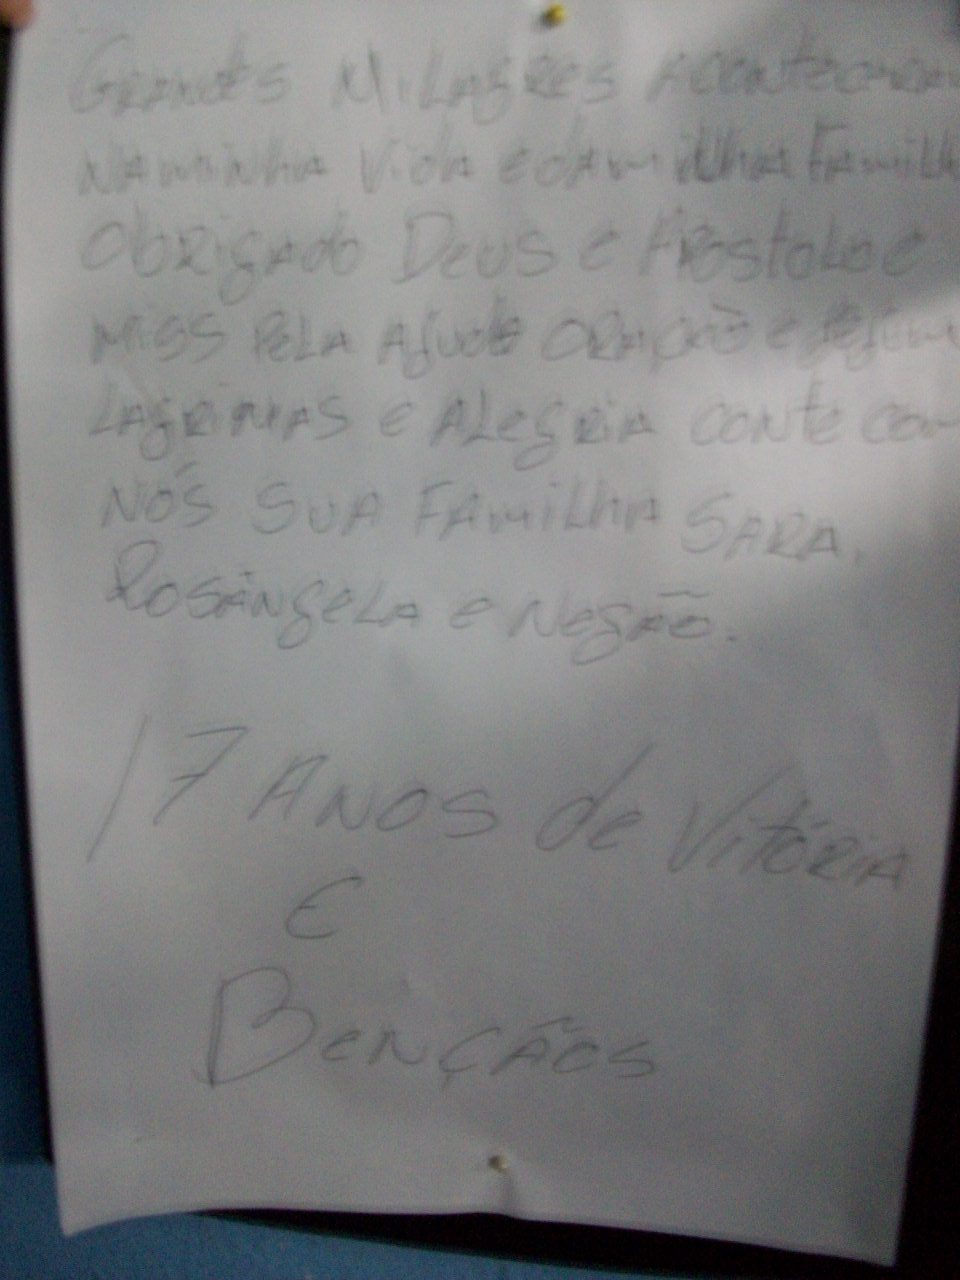 Grandes Milagres aconteceram
na minha vida e da minha Famili
Obrigado Deus e Apostolo e
Miss Pela Ajuda oração e Jejum
Lagrimas e Alegria conte com
Nós Sua Familha Sara,
Rosângela e Negrão.
17 Anos de Vitória
e
Bençãos